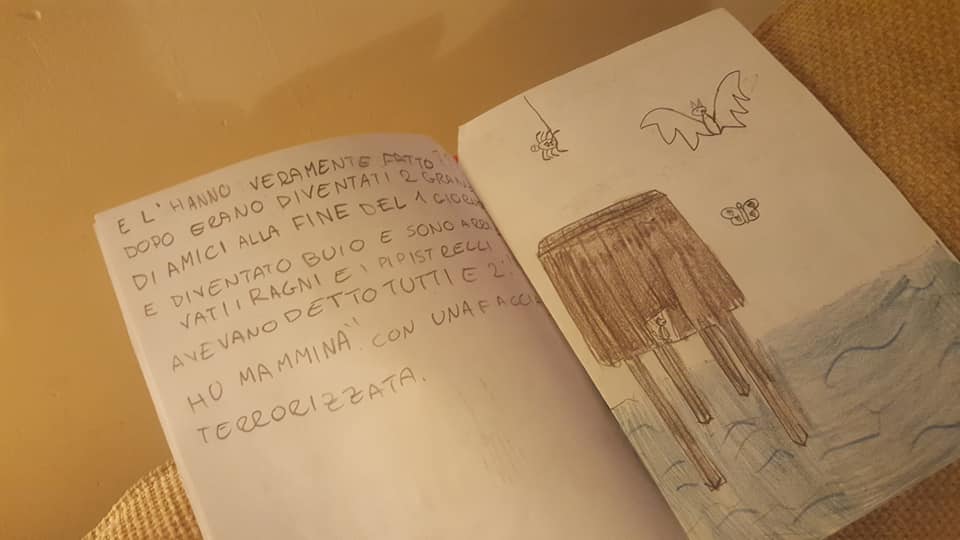 E L'HANNO VERAMENTE FATTO
DOPO ERANO DIVENTATI 2 GRAN
DI AMICI ALLA FINE DEL 1 GIORN
E DIVENTATO BUIO E SONO ARRI
VATI I RAGNI E I PIPISTRELLI
AVEVANO DETTO TUTTI E 2:
HO MAMMINA" CON UNA FACCI
TERRORIZZATA.